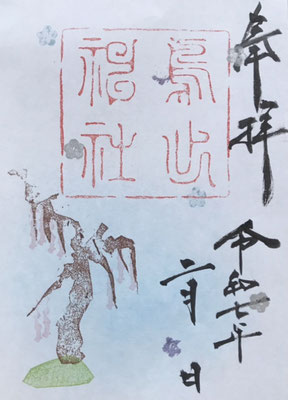 奉拝
鳥出
神社
令和七年
二月 日